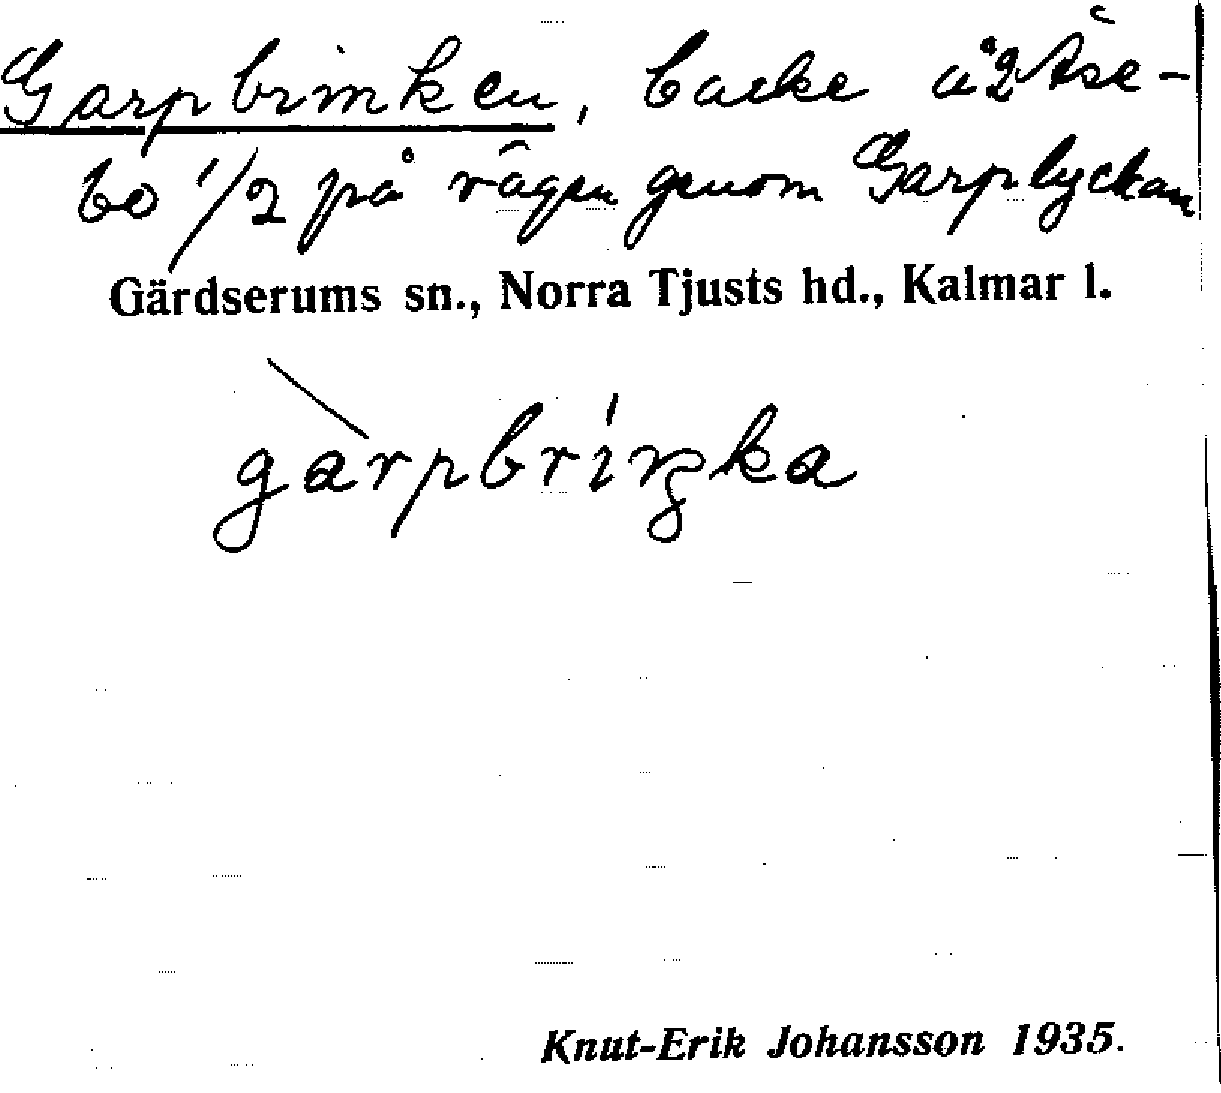 Garpbrinken, backe å 2 Åse-
bo 1/2 på vägen genom Garplyckan
Gärdserums sn., Norra Tjusts hd., Kalmar l.
garpbriŋka
Knut-Erik Johansson 1935.